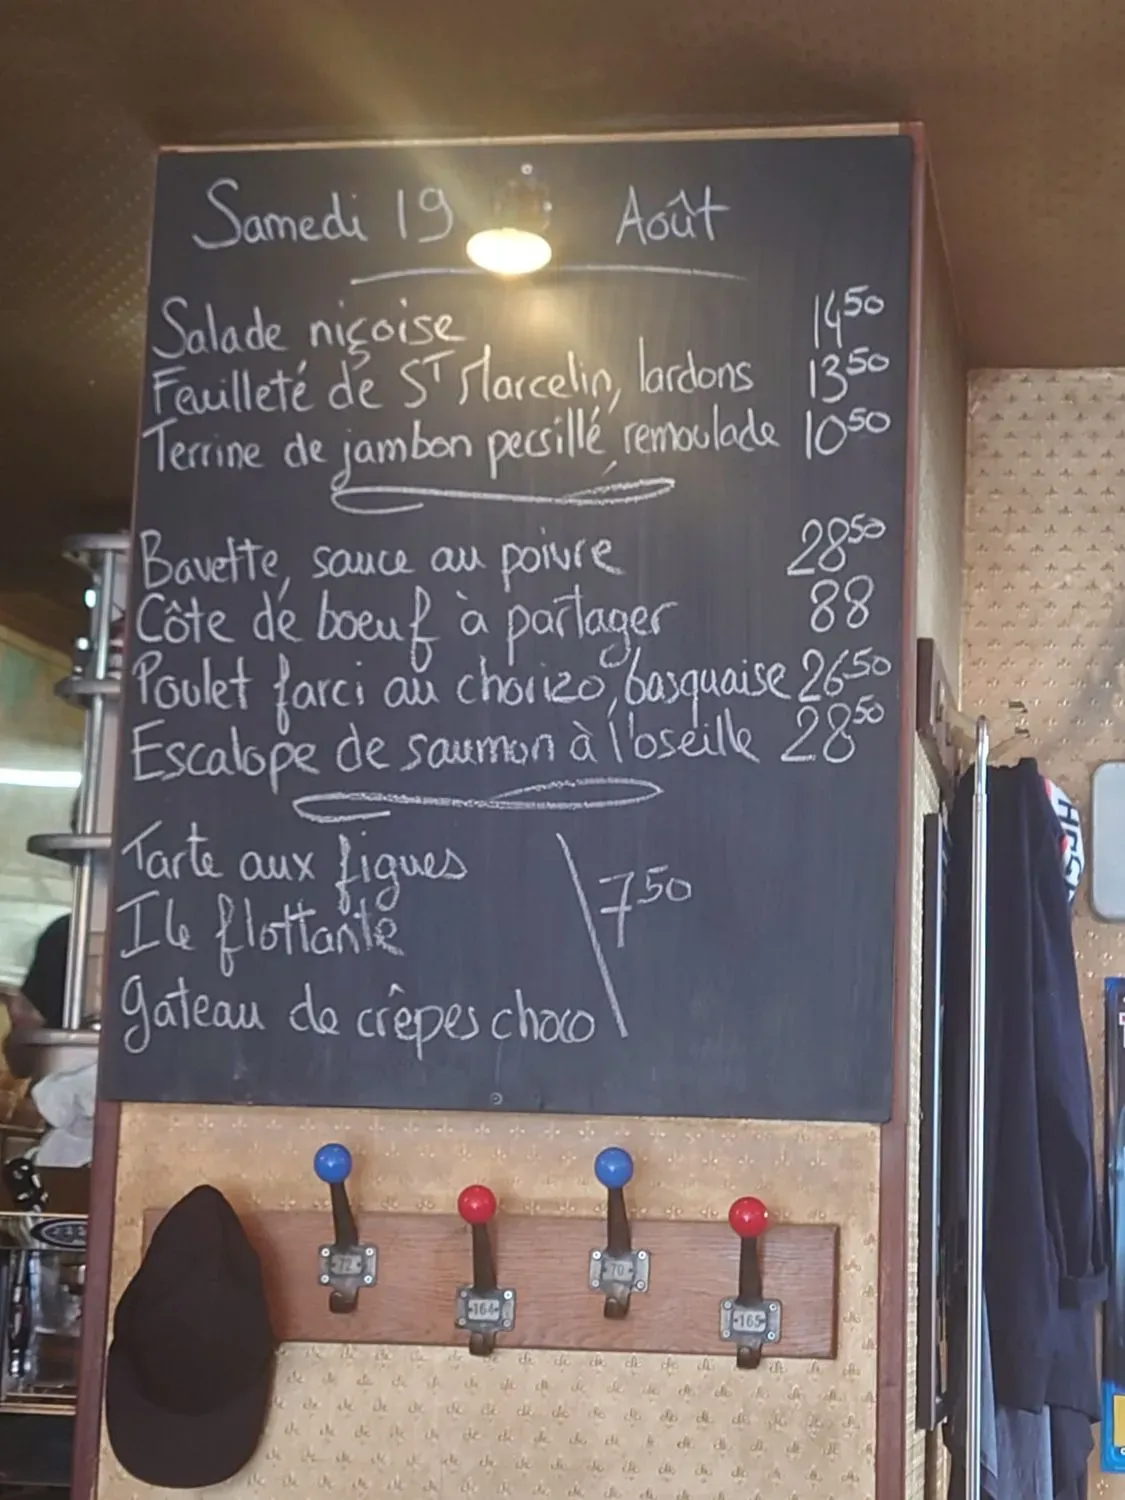 Samedi 19 Août
Salade niçoise 1450
Feuilleté de ST Marcelin, lardons 1350
Terrine de jambon persillé, remoulade 1050
Bavette, sauce au poivre 2850
Côte de boeuf à partager 88
Poulet farci au chorizo, basquaise 2650
Escalope de saumon à l'oseille 2850
Tarte aux figues
Ile flottante 750
gateau de crêpes choco
72
164
70
165